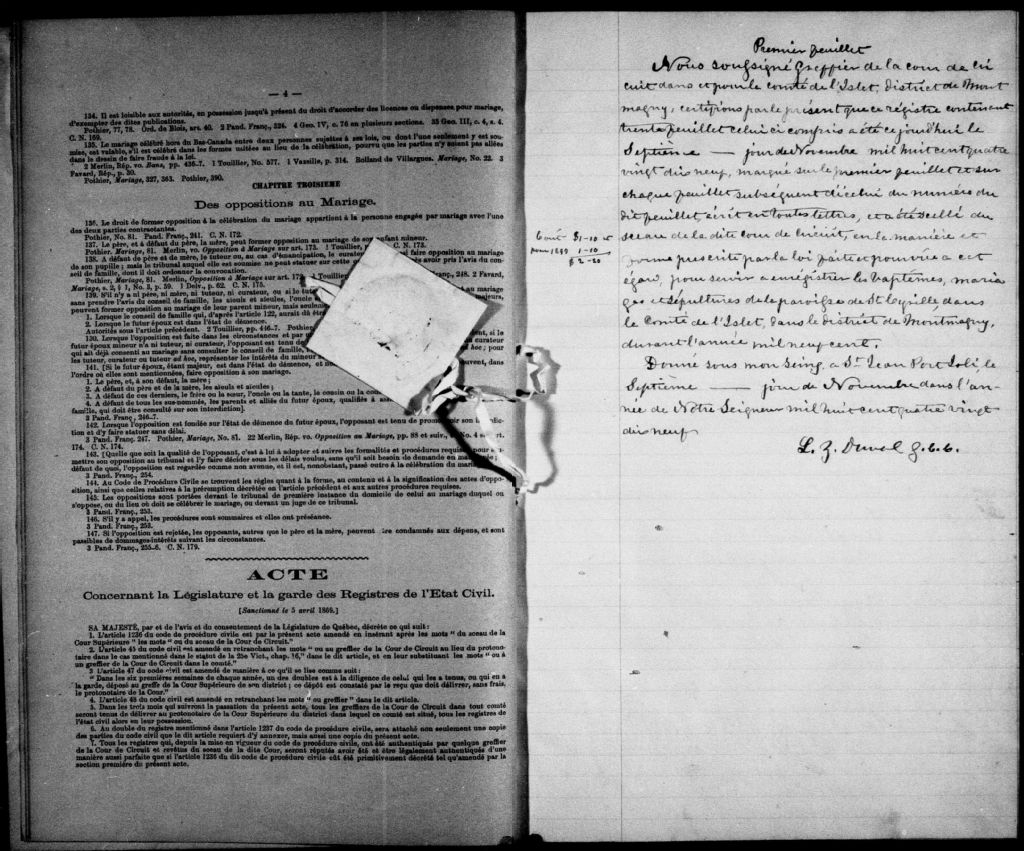 — 4 —
134. Il est loisible aux autorités, en possession jusqu'à présent du droit d'accorder des licences ou dispenses pour mariage,
d'exempter des dites publications.
Pothier, 77, 78. Ord. de Blois, art. 40. 2 Pand. Franç., 324. 4 Geo. IV, c. 76 en plusieurs sections. 35 Geo. III, c. 4, s. 4.
C. N. 169.
135. Le mariage célébré hors du Bas-Canada entre deux personnes sujettes à ses lois, ou dont l'une seulement y est sou-
mise, est valable, s'il est célébré dans les formes usitées au lieu de la célébration, pourvu que les parties n'y soient pas allées
dans le dessein de faire fraude à la loi.
2 Merlin, Rép. vo. Bans, pp. 436-7. 1 Touillier, No. 577. 1 Vazeille, p. 314. Rolland de Villargues. Mariage, No. 22. 3
Favard, Rép., p. 30.
Pothier, Mariage, 327, 363. Pothier, 390.
CHAPITRE TROISIEME
Des oppositions au Mariage.
136. Le droit de former opposition à la célébration du mariage appartient à la personne engagée par mariage avec l'une
des deux parties contractantes.
Pothier, No. 81. Pand. Franç., 241. C. N. 172.
137. Le père, et à défaut du père, la mère, peut former opposition au mariage de son enfant mineur.
Pothier, Mariage, 81. Merlin, vo. Opposition à Mariage sur art. 173. 1 Touillier, C. N. 173.
138. A défaut de père et de mère, le tuteur ou, au cas d'émancipation, le curateur faire opposition au mariage
de son pupille; mais le tribunal auquel elle est soumise ne peut statuer sur cette avoir pris l'avis du con-
seil de famille, dont il doit ordonner la convocation.
Pothier, No. 81, Merlin, Opposition à Mariage sur art. 173. 248. 2 Favard,
Mariage, s. 2, § 1, No. 3, p. 59. 1 Delv., p. 62. C. N. 175.
139. S'il n'y a ni père, ni mère, ni tuteur, ni curateur, ou si le au mariage
sans prendre l'avis du conseil de famille, les aieuls et aieules, l'oncle majeurs,
peuvent former opposition au mariage de leur parent mineur, mais seulement
1. Lorsque le conseil de famille qui, d'après l'article 122, aurait dû
2. Lorsque le futur époux est dans l'état de démence.
Autorités sous l'article précédent. 2 Touillier, pp. 446-7. Pothier
Lorsque l'opposition est faite dans les circonstances et par si le
futur époux mineur n'a ni tuteur, ni curateur, l'opposant est tenu curateur
qui ait déjà consenti au mariage sans consulter le conseil de famille, hoc; pour
les tuteur, curateur ou tuteur ad hoc, représenter les intérêts du mineur
141. [Si le futur époux, étant majeur, est dans l'état de démence, et
l'ordre où elles sont mentionnées, faire opposition à son mariage.
1. Le père, et, à son défaut, la mère;
2. A défaut du père et de la mère, les aieuls et aieules;
3. A défaut de ces derniers, le frère ou la sœur, l'oncle ou la tante, le cousin ou la
4. A défaut de tous les sus-nommés, les parents et alliés du futur époux, qualifiés à
famille, qui doit être consulté sur son interdiction].
3 Pand. Franç., 246-7.
142. Lorsque l'opposition est fondée sur l'état de démence du futur époux, l'opposant est tenu de son
diction et d'y faire statuer sans délai.
3 Pand. Franç. 247. Pothier, Mariage, No. 81. 22 Merlin, Rép. vo. Opposition au Mariage, pp. 88 et suiv., No. 4
174. C. N. 174.
143. [Quelle que soit la qualité de l'opposant, c'est à lui à adopter et suivre les formalités et procédures requises
mettre son opposition au tribunal et l'y faire décider sous les délais voulus, sans qu'il soit besoin de demande en
défaut de quoi, l'opposition est regardée comme non avenue, et il est, nonobstant, passé outre à la célébration du mariage.
3 Pand. Franç., 254.
144. Au Code de Procédure Civile se trouvent les règles quant à la forme, au contenu et à la signification des actes d'oppo-
sition, ainsi que celles relatives à la péremption décrétée en l'article précédent et aux autres procédures requises.
145. Les oppositions sont portées devant le tribunal de première instance du domicile de celui au mariage duquel on
s'oppose, ou du lieu où doit se célébrer le mariage, ou devant un juge de ce tribunal.
3 Pand. Franç., 253.
146. S'il y a appel, les procédures sont sommaires et elles ont préséance.
3 Pand. Franç., 253.
147. Si l'opposition est rejetée, les opposants, autres que le père et la mère, peuvent être condamnés aux dépens, et sont
passibles de dommages-intérêts suivant les circonstances.
3 Pand. Franç., 255-6. C. N. 179.
ACTE
Concernant la Législature et la garde des Registres de l'Etat Civil.
[Sanctionné le 5 avril 1869.]
SA MAJESTÉ, par et de l'avis et du consentement de la Législature de Québec, décrète ce qui suit:
1. L'article 1236 du code de procédure civile est par le présent acte amendé en insérant après les mots "du sceau de la
Cour Supérieure" les mots "ou du sceau de la Cour de Circuit."
2. L'article 45 du code civil est amendé en retranchant les mots "ou au greffier de la Cour de Circuit au lieu du protono-
taire dans le cas mentionné dans le statut de la 25e Vict., chap. 16," dans le dit article, et en leur substituant les mots "ou à
un greffier de la Cour de Circuit dans le comté."
3 L'article 47 du code civil est amendé de manière à ce qu'il se lise comme suit:
"Dans les six premières semaines de chaque année, un des doubles est à la diligence de celui qui les a tenus, ou qui en a
la garde, déposé au greffe de la Cour Supérieure de son district; ce dépôt est constaté par le reçu que doit délivrer, sans frais,
le protonotaire de la Cour."
4. L'article 48 du code civil est amendé en retranchant les mots "ou greffier" dans le dit article.
5. Dans les trois mois qui suivront la passation du présent acte, tous les greffiers de la Cour de Circuit dans tout comté
seront tenus de délivrer au protonotaire de la Cour Supérieure du district dans lequel ce comté est situé, tous les registres de
l'état civil alors en leur possession.
6. Au double du registre mentionné dans l'article 1237 du code de procédure civile, sera attaché non seulement une copie
des parties du code civil que le dit article requiert d'y annexer, mais aussi une copie du présent acte.
7. Tous les registres qui, depuis la mise en vigueur du code de procédure civile, ont été authentiqués par quelque greffier
de la Cour de Circuit et revêtus du sceau de la dite Cour, seront réputés avoir été et être légalement authentiqués d'une
manière aussi parfaite que si l'article 1236 du dit code de procédure civile eût été primitivement décrété tel qu'amendé par la
section première du présent acte.
Premier feuillet
Nous soussigné Greffier de la cour de cir
cuit dans et pour le comté de l'Islet, district de Mont
magny, certifions par le présent que ce régistre contenant
trente feuillet celui ci compris a été ce jourd'hui le
Septième — jour de Novembre mil huit cent quatre
vingt dix neuf, marqué sur le premier feuillet et sur
chaque feuillet subséquent d'icelui du numéro du
dit feuillet écrit en toutes lettres, et a été scellé du
sceau de la dite cour de Circuit, en la manière et
forme prescrite par la loi faite et pourvue a cet
égard, pour servir a enrégistrer les baptêmes, maria
ges et sépultures de la paroisse de St Cyrille, dans
le Comté de l'Islet, dans le district de Montmagny,
durant l'année mil neuf cent.
Donné sous mon Seing, a St Jean Port Joli, le
Septième — jour de Novembre dans l'an-
née de Notre Seigneur mil huit cent quatre vingt
dix neuf
L. Z. Duval G. C. C.
$1-10
1899 1-10
$2-20